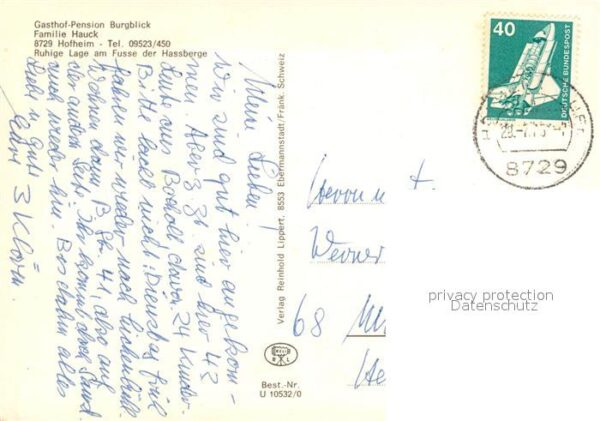 Gasthof-Pension Burgblick
Familie Hauck
8729 Hofheim - Tel. 09523/450
Ruhige Lage am Fusse der Hassberge
Mein Lieben!
Wir sind gut hier angekom-
men. Aber z. Zt. sind hier 43
Leute aus Bocholt davon 24 Kinder.
Bitte lacht nicht! Dienstag früh
fahren wir wieder nach
Wohnen dann B. Str. 41, also auf
der andern Seite. Ihr kommt doch Sonnt.
auch wieder hin. Bis dahin alles
Liebe u. gute
Eure 3
Verlag Reinhold Lippert, 8553 Ebermannstadt/Fränk. Schweiz
Best.-Nr.
U 10532/0
40
DEUTSCHE BUNDESPOST
8729
Herrn u. F.
Werner
68
privacy protection
Datenschutz